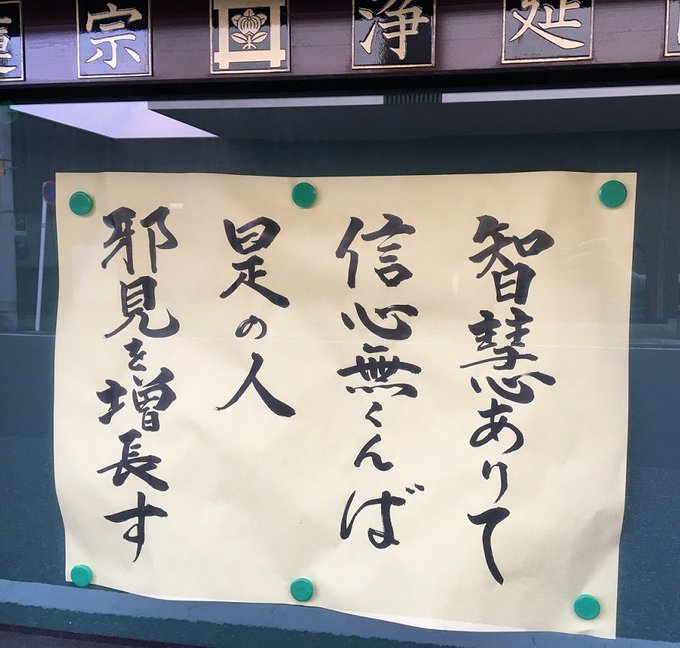 宗 浄延
智慧ありて
信心無くんば
是の人
邪見を増長す